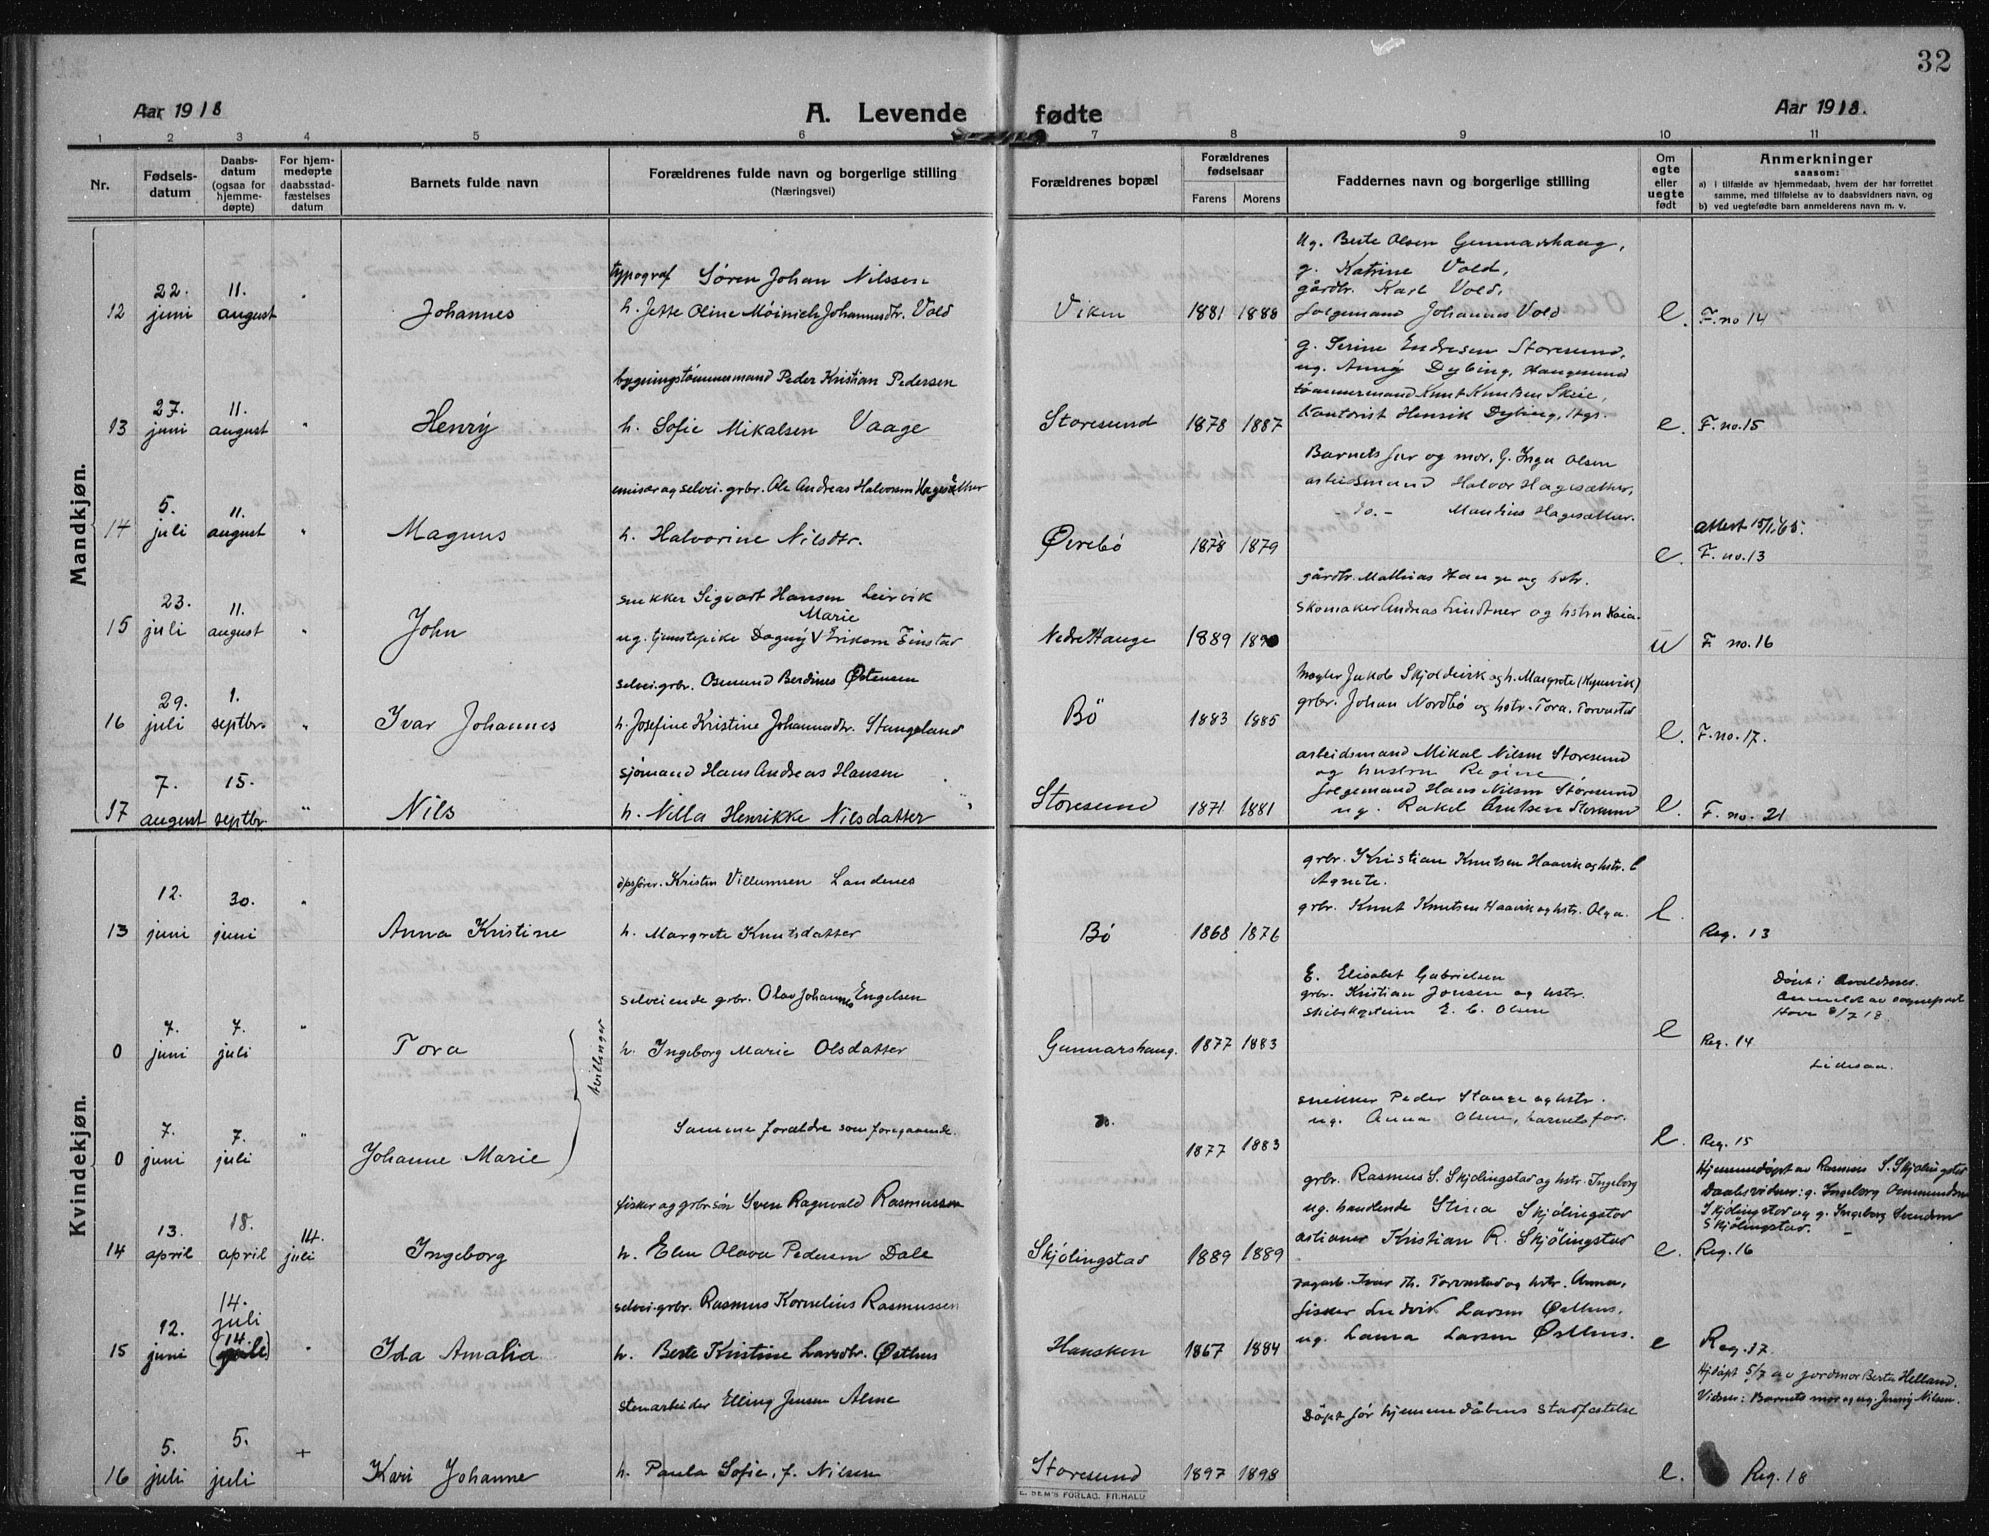 32
Aar 1918
A. Levende fødte
Aar 1918.
1 2 3 4 5 6 7 8 9 10 11
Nr.
Fødsels-
datum
Daabs-
datum
(ogsaa for
hjemme-
døpte)
For hjem-
medøpte
daabsstad-
fæstelses
datum
Barnets fulde navn
Forældrenes fulde navn og borgerlige stilling
(Næringsvei)
Forældrenes bopæl
Forældrenes
fødselsaar
Farens Morens
Faddernes navn og borgerlige stilling
Om
egte
eller
uegte
født
Anmerkninger
saasom:
a) i tilfælde av hjemmedaab, hvem der har forrettet
samme, med tilføielse av to daabsvidners navn, og
b) ved uegtefødte barn anmelderens navn m. v.
Mandkjøn.
12
22.
juni
11.
august
"
Johannes
typograf Søren Johan Nilssen
h. Jette Oline Móinich Johannesdtr. Vold
Viken
1881 1888
Ug. Berte Olsen Gunnarshaug,
g. Katrine Vold,
gårdbr. Karl Vold,
Johannes Vold
e.
F. no 14
13
27.
juni
11.
august
"
Henrÿ
bygningstømmermand Peder Kristian Pedersen
h. Sofie Mikalsen Vaage
Storesund
1878 1887
g. Serine Endresen Storesund,
ug. Anny Dybing, Haugesund
tømmermand Knut Knutsen Skeie,
Henrik Dybing, Hgs.
e.
F. no. 15
14
5.
juli
11.
august
"
Magnus
emisær og selvei. grbr. Ole Andreas Halvorsen Hagesæther
h. Halvorine Nilsdtr.
Øvrebö
1878 1879
Barnets far og mor. G. Inga Olsen
arbeidsmand Halvor Hagesæther,
- do. - Hagesæther.
e.
Attest 15/1 65.
F. no. 13
15
23.
juli
11.
august
"
John
snekker Sigvart Hansen Leirvik
Marie
ug. tjenstepike Dagny V Eriksen Finstad
Nedre Hauge
1889 1890
gårdbr. Mathias Hauge og hstr.
Skomaker Andreas Lindtner og hstru Kaia.
u
F no. 16
16
29.
juli
1.
septbr.
"
Ivar Johannes
selvei. grbr. Osmund Berdines Østensen
h. Josefine Kristine Johannesdtr. Stangeland
Bö
1883 1885
Mægler Jakob Skjoldevik og h. Margrete
grbr. Johan Nordbö og hstr. Tora. Torvastad
e.
F. no. 17.
17
7.
august
15.
septbr
"
Nils
sjömand Hans Andreas Hansen
h. Nilla Henrikke Nilsdatter
Storesund
1871 1881
arbeidsmand Mikal Nilsen Storesund
og hustru Regine
Hans Nilsen Störesund
ug. Rakel Storesund
e.
F. no. 21
Kvindekjøn.
13
12.
juni
30.
juni
"
Anna Kristine
opsöer. Kristen Villumsen Landenes
h. Margrete Knutsdatter
Bó
1868 1876
grbr. Kristian Knutsen Haavik og hstr.
Agnete.
grbr. Knut Knutsen Haavik og hstr. Olga.
e.
Reg. 13
0
7.
juni
7.
juli
"
Tora
tvillinger
selveiende grbr. Olav Johannes Engelsen
h. Ingeborg Marie Olsdatter
Gunnarshaug.
1877 1883
E. Elisabet Gabrielsen
grbr. Kristian Jensen og hstr.
skibskaptein E. C. Olsen
e
Döpt i Avaldsnes.
Anmeldt av sogneprest
Hove 8/7 18.
Reg. 14
0
7.
juni
7.
juli
"
Johanne Marie
Samme forældre som foregaaende.
do.
1877 1883
snekker Peder Stange og hstr.
ug. Anna Olsen, barnets far.
e.
Reg. 15
14
13.
april
18.
april
14.
juli
Ingeborg
fisker og grbr sön Sven Ragnvald Rasmussen
h. Elen Olava Pedersen Dale
Skjölingstad
1889 1889
grbr. Rasmus S. Skjölingstad og hstr. Ingeborg
ug. handlende Stina Skjölingstad
Kristian R. Skjölingstad
e.
Hjemmedöpt av Rasmus S. Skjölingstad
Daabsvidner: g. Ingeborg Osmundsen
Skjölingstad og g. Ingeborg Svendsen
Skjölingstad.
Reg. 16
15
12.
juni
14.
juli
(14.
"
Ida Amalia
selvei. grbr. Rasmus Kornelius Rasmussen
h. Berte Kristine Larsdtr. Østhus
Hausken
1867 1884
Ivar Th. Torvastad og hstr. Anna,
fisker Ludvik Larsen Østhus,
ug. Laura Larsen Østhus.
e
Reg. 17.
16
5.
juli
5.
juli
+
Kari Johanne
stenarbeider Elling Jensen Alne
h. Paula Sofie, f. Nilsen
Storesund
1897 1898
Död för hjemmedåbens stadfæstelse
e.
Hjdöpt 5/7 av jordmor Berte Helland.
Vidner: Barnets mor og ug. Jenny Nilsen.
Reg. 18
E. SEM'S FORLAG. FR.HALD